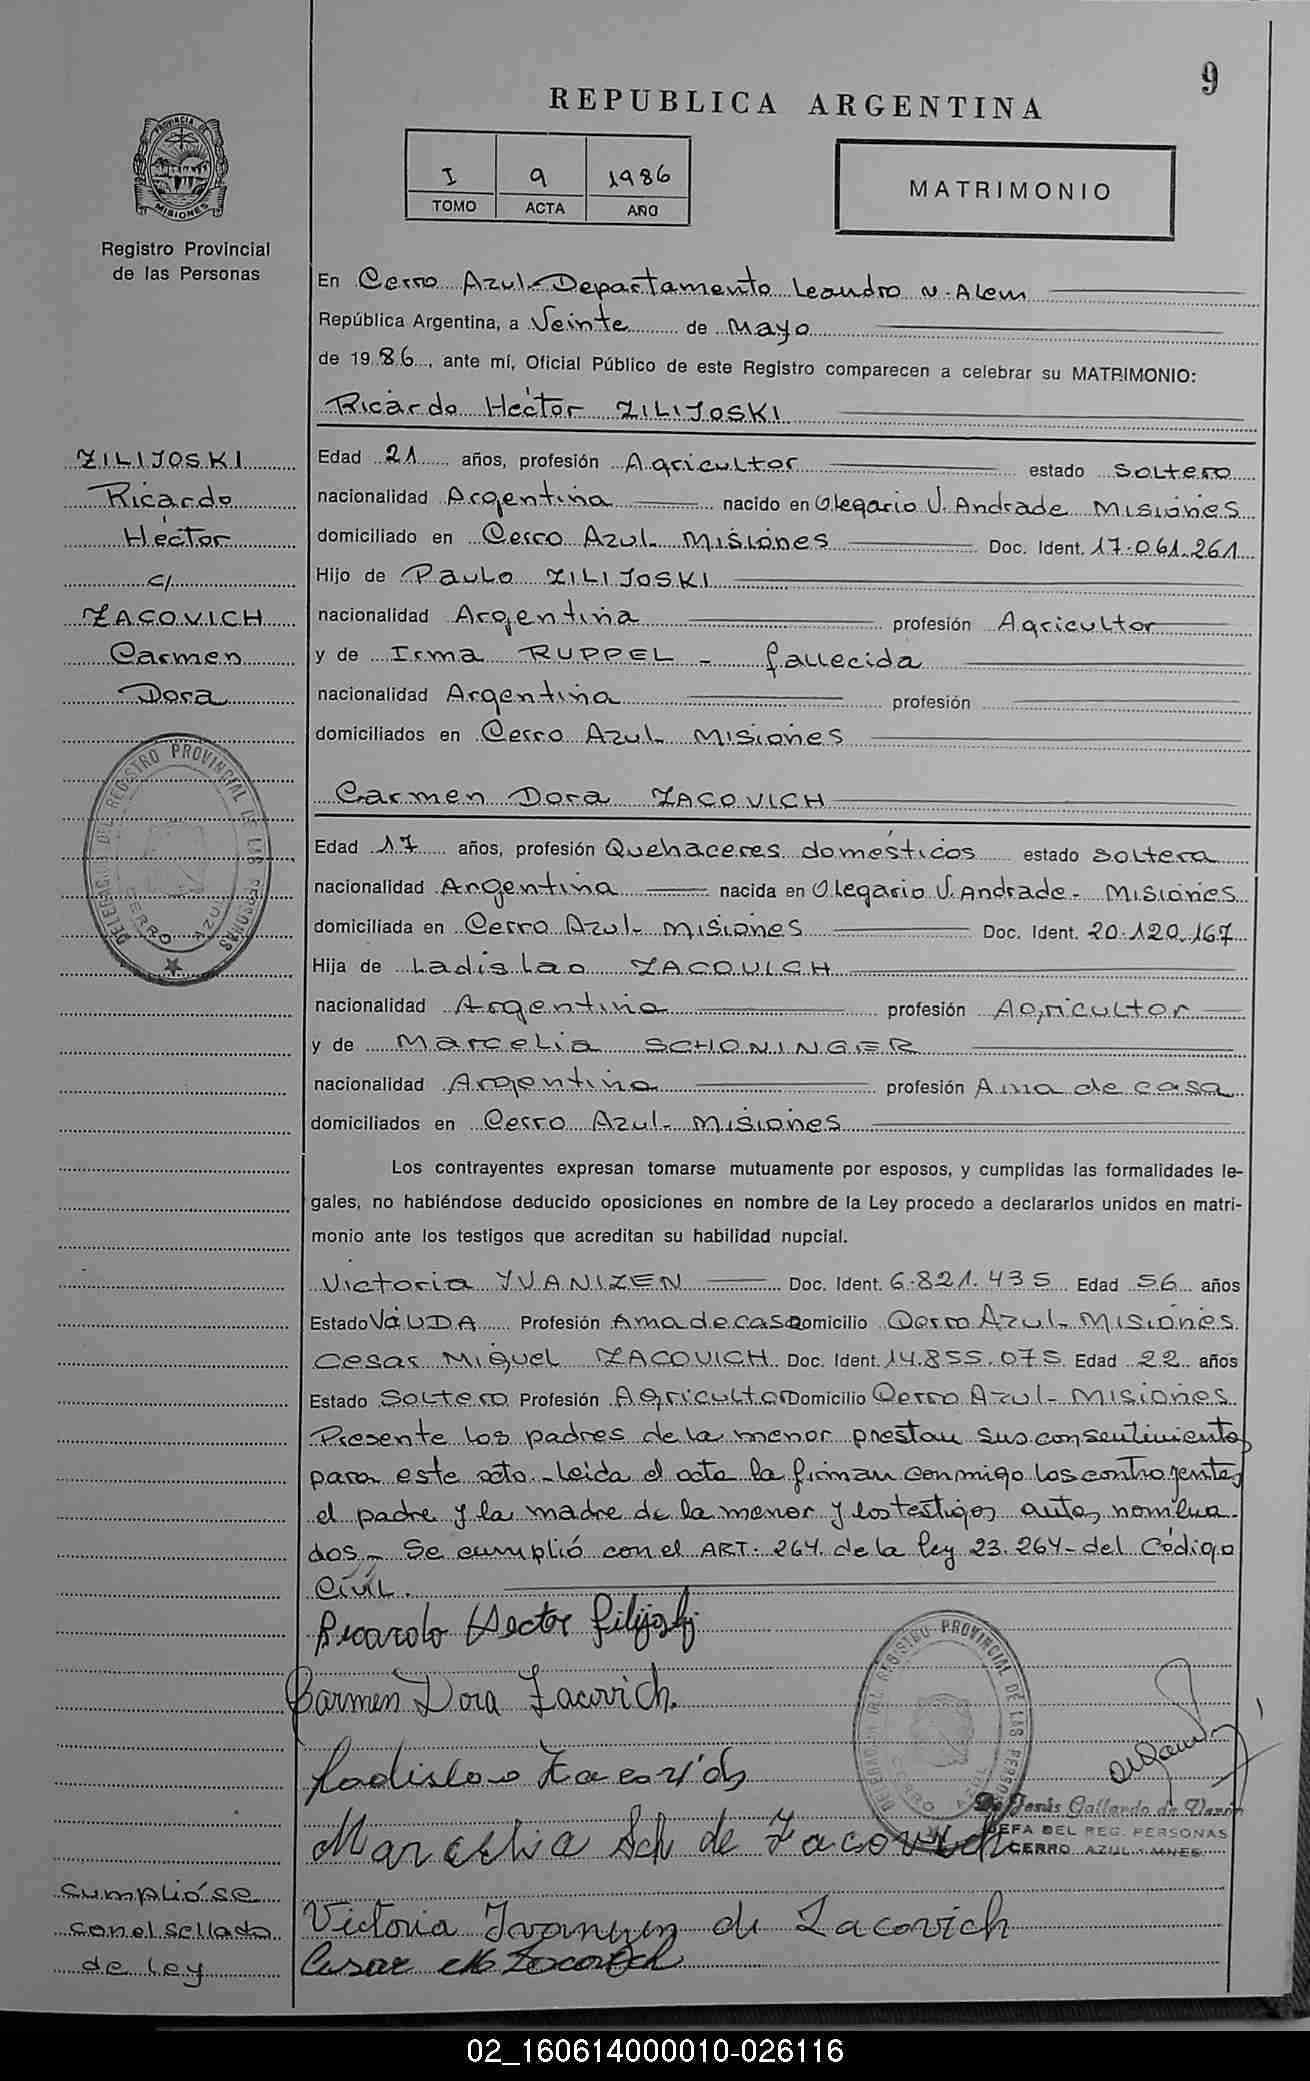 9
REPUBLICA ARGENTINA
PROVINCIA DE
MISIONES
I 9 1986
TOMO ACTA AÑO
MATRIMONIO
Registro Provincial
de las Personas
En Cerro Azul-Departamento Leandro N. Alem
República Argentina, a Veinte de Mayo
de 1986, ante mí, Oficial Público de este Registro comparecen a celebrar su MATRIMONIO:
Ricardo Héctor ZILIJOSKI
ZILIJOSKI
Ricardo
Héctor
c/
ZACOVICH
Carmen
Dora
Edad 21 años, profesión Agricultor estado Soltero
nacionalidad Argentina nacido en Olegario V. Andrade Misiones
domiciliado en Cerro Azul- Misiones Doc. Ident. 17.061.261
Hijo de Paulo ZILIJOSKI
nacionalidad Argentina profesión Agricultor
y de Irma RUPPEL - fallecida
nacionalidad Argentina profesión
domiciliados en Cerro Azul Misiones
DELEGACION DEL REGISTRO PROVINCIAL DE LAS PERSONAS
CERRO AZUL
Carmen Dora ZACOVICH
Edad 17 años, profesión Quehaceres domésticos estado Soltera
nacionalidad Argentina nacida en Olegario V. Andrade- Misiones
domiciliada en Cerro Azul- Misiones Doc. Ident. 20.120.167
Hija de Ladislao ZACOVICH
nacionalidad Argentina profesión Agricultor
y de Marcelia SCHONINGER
nacionalidad Argentina profesión Ama de casa
domiciliados en Cerro Azul- Misiones
Los contrayentes expresan tomarse mutuamente por esposos, y cumplidas las formalidades le-
gales, no habiéndose deducido oposiciones en nombre de la Ley procedo a declararlos unidos en matri-
monio ante los testigos que acreditan su habilidad nupcial.
Victoria YVANIZEN Doc. Ident. 6.821.435 Edad 56 años
Estado VáUDA Profesión Ama de casa Domicilio Cerro Azul- Misiones
Cesar Miguel ZACOVICH Doc. Ident. 14.855.075 Edad 22 años
Estado Soltero Profesión Agricultor Domicilio Cerro Azul- Misiones
Presente los padres de la menor prestan sus consentimientos
para este acto.- Leida el acta la firman conmigo los contrayentes,
el padre y la madre de la menor y los testigos antes nombra-
dos.- Se cumplió con el ART. 264 de la ley 23.264- del Código
Civil.
Ricardo Hector Zilijoski
Carmen Dora Zacovich.
Ladislao Zacovich
DELEGACION DEL REGISTRO PROVINCIAL DE LAS PERSONAS
CERRO AZUL
De Jesús Gallardo de
JEFA DEL REG. PERSONAS
CERRO AZUL - MNES.
Marcelia Sch de Zacovich
cumplióse
con el sellado
de ley
Victoria Ivanyzen de Zacovich
Cesar M Zacovich
02_160614000010-026116